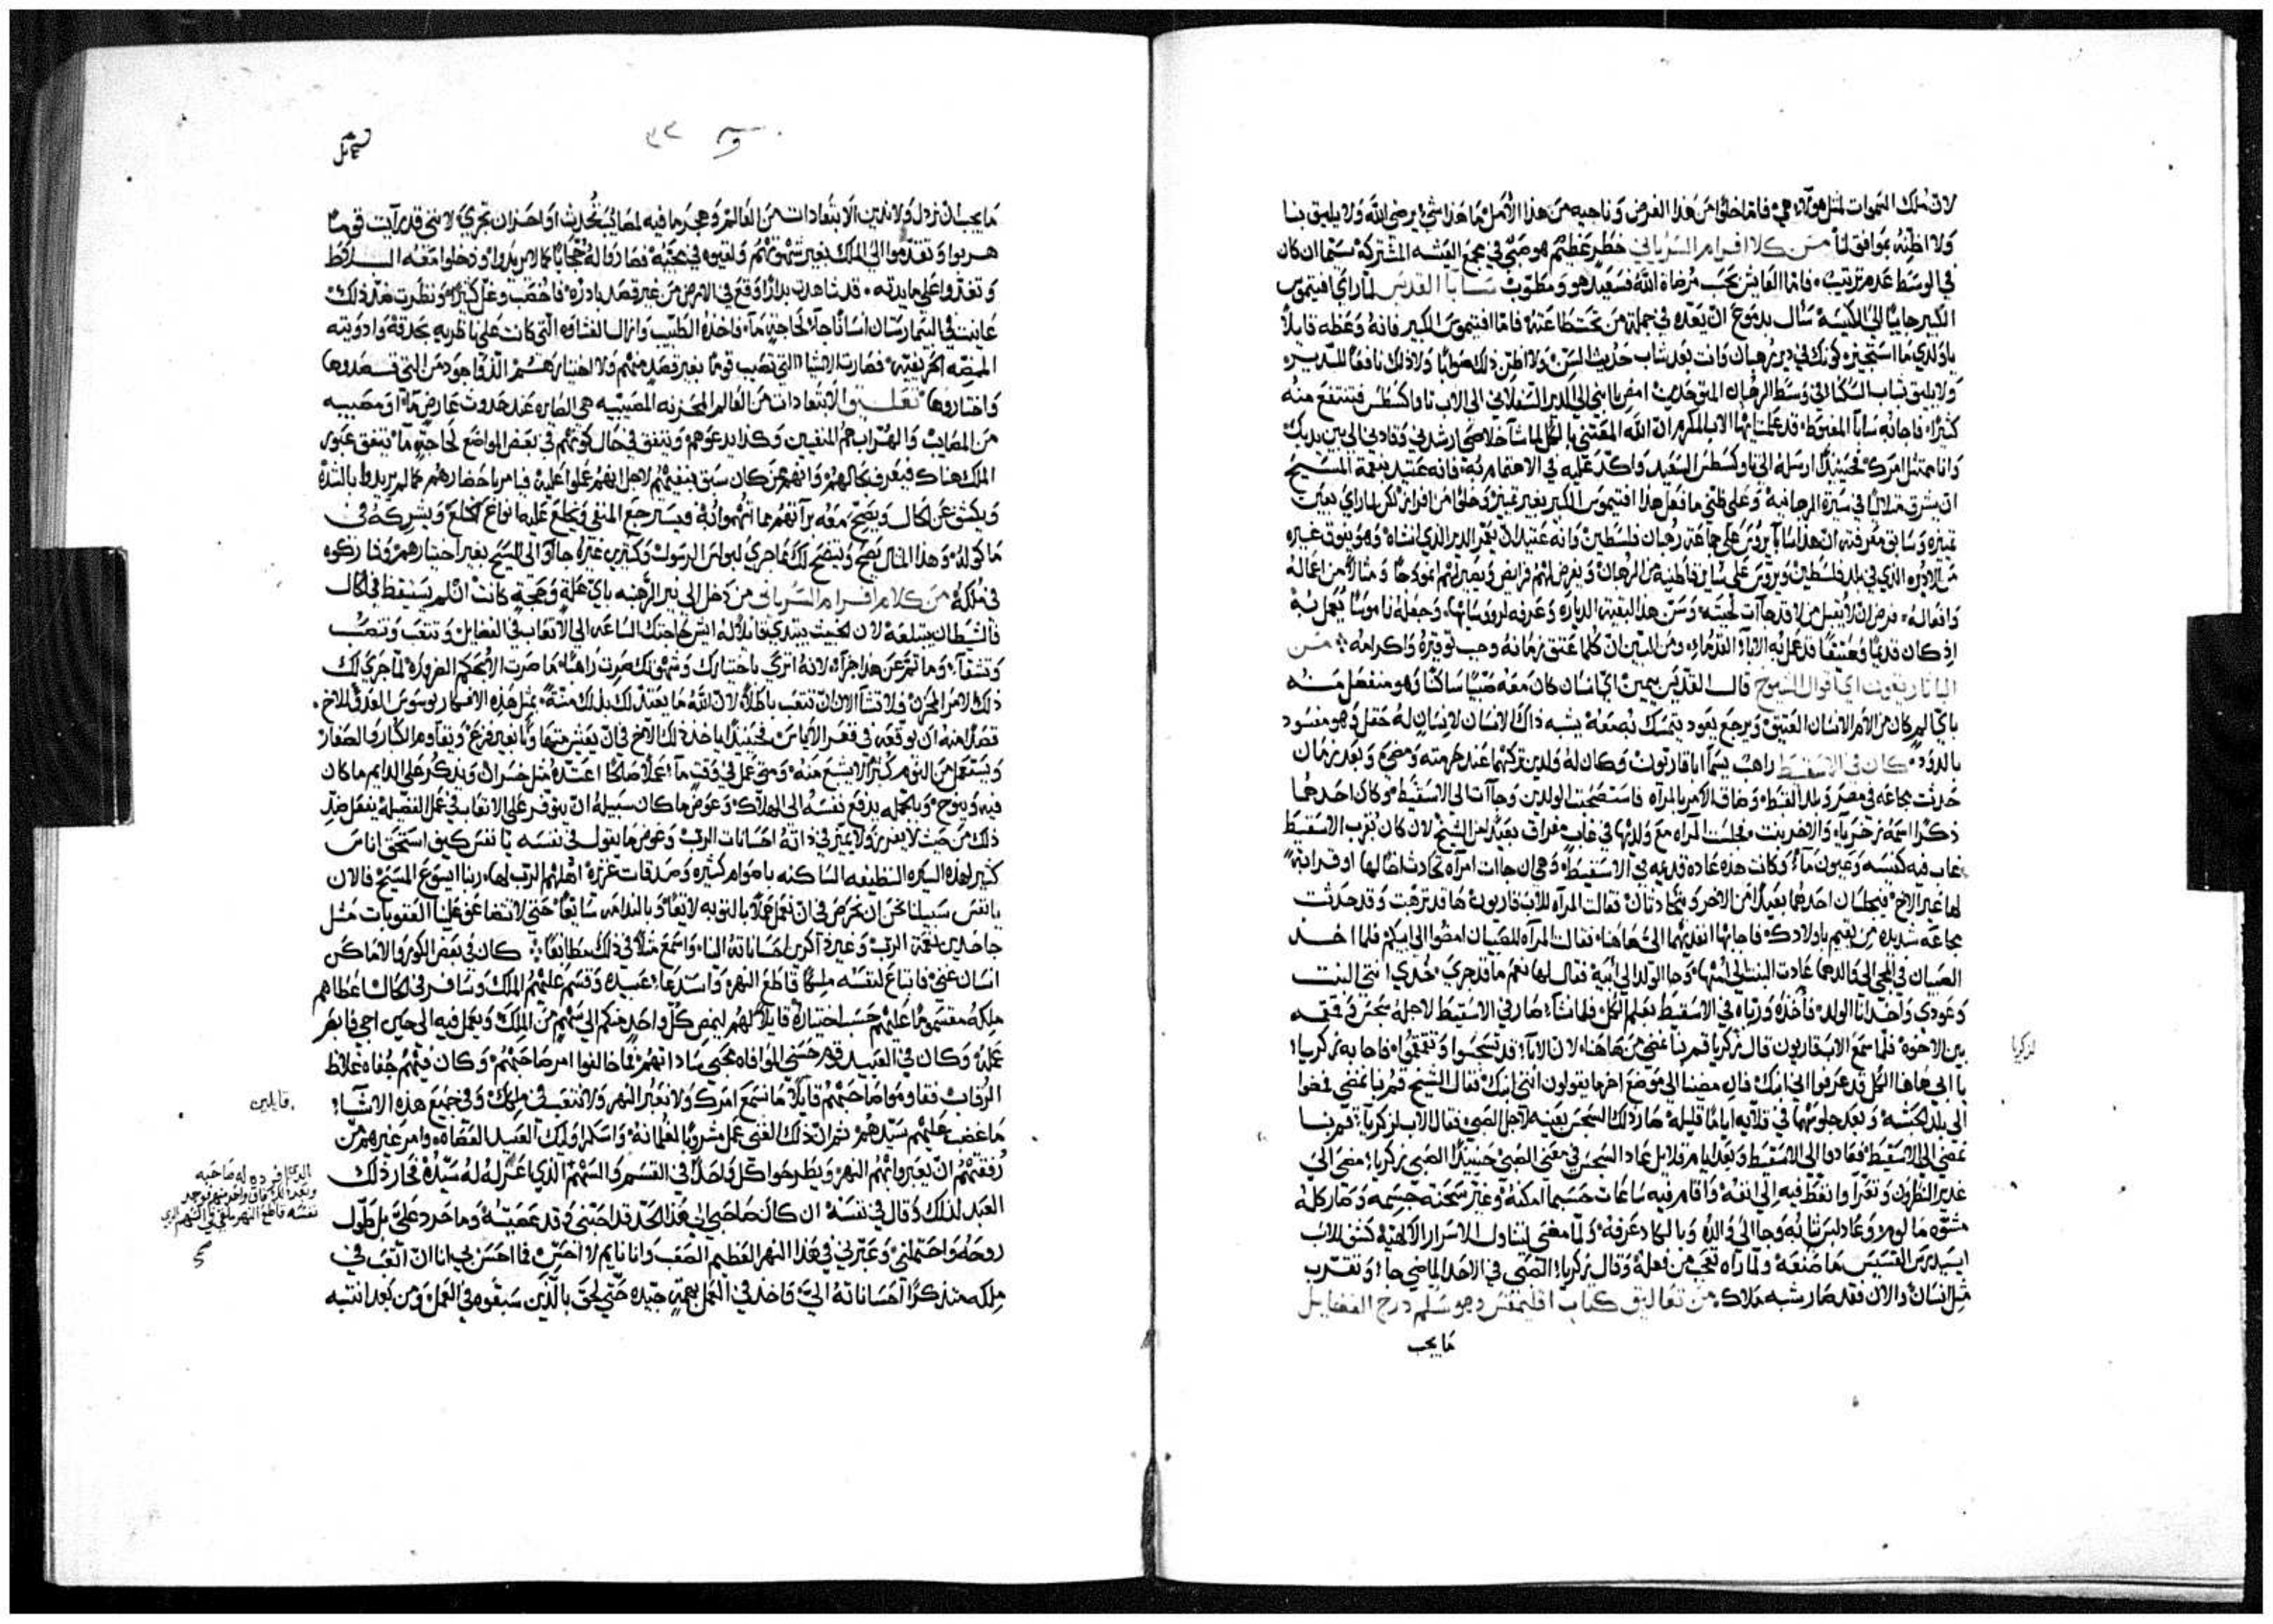 لان ملك السموات لمثل هولاء هي فاما خلوا من هذا الغرض وناجيه من هذا الامل فما هذا شي يرضي الله ولا يليق بنا
ولا اظنه بموافق لنا من كلام افرام السرياني خطر عظيم هو صبي في مجمع العيشه المشتركه سيما ان كان
في الوسط عدم ترتيب فاما العايش بحسب مرضاة الله فسعيد هو ومطوب سابا القديس لما راي افتيموس
الكبير جاييا الي الكنيسة سال بدموع ان يعده في جملة من تحت طاعته فاما افتيموس الكبير فانه وعظه قايلا
يا ولدي ما استجيز كونك في دير رهبان وانت بعد شاب حديث السن ولا اظن ذلك صوابا ولا ذلك نافعا للديره
ولا يليق شاب السكنا في وسط الرهبان المتوحدين امض يا ابني الي الدير السفلاني الي الاب ثاوكسطس فتنتفع منه
كثيرا فاجابه سابا المغبوط قد علمت ايها الاب المكرم ان الله المعتني بالكل لما شا خلاصي ارشدني وقادني الي بين يديك
وانا ممتثل امرك فحينيذ ارسله الي ثاوكسطس السعيد واكد عليه في الاهتمام به فانه عتيد بنعمة المسيح
ان يشرق متلالئا في سيرة الرهبانية وعلي ظني ما فعل هذا افتيموس الكبير بغير تمييز وخلوا من افراز لكن لما راي بعين
تميزه وسابق معرفته ان هذا سابا يروس علي جماعة رهبان فلسطين وانه عتيد ان يعمر الدير الذي انشاه وهو يفوق غيره
من الاديره الذي في بلد فلسطين ويروس علي ساير قاطنيه من الرهبان ويفرض لهم فرايض ويصير لهم انموذجا ومثالا من اعماله
وافعاله فرض ان لا يقبل من لا قد جات لحيته وسن هذا لبقية الدياره وعرفه لروساها وجعله ناموسا يعمل به
اذ كان قديما ومعتقا قد عمل به الابا القدما ومن البين ان كلما عتق زمانه وجب توقيره واكرامه من
الباتاريقون اي اقوال الشيوخ قال القديس سيمن اي انسان كان معه صبيا ساكنا وهو منفعل منه
باي الم كان من الام الانسان العتيق ويرجع يعود يتمسك بصنعه يشبه ذاك الانسان لانسان له حقل وهو مفسود
بالدود كان في الاسقيط راهب يسما ابا قاربون وكان له ولدين تركهما عند حرمته ومضي وبعد زمان
حدثت مجاعه في مصر وبلد القبط وضاق الامر بالمراه فاستصحبت الولدين وجاات الي الاسقيط وكان احدهما
ذكرا اسمه زخريا والاخر بنت فجلست المراه مع ولديها في غاب مفراق بعيدا من الشيخ لان كان بقرب الاسقيط
غاب فيه كنيسه وعيون ما وكانت هذه عاده قديمه في الاسقيط وهي ان جاات امراه تحادث اخا لها او قرابة
لها غير الاخ فيجلسان احدهما بعيدا من الاخر ويتحادثان فقالت المراه للاب قاربون ها قد ترهبت وقد حدثت
مجاعه شديده من يقيم باولادك فاجابها انفديهما الي هاهنا فقالت المراه للصبيان امضوا الي ابيكم فلما اخذ
الصبيان في المجي الي والدهما عادت البنت الي امها وجا الولد الي ابيه فقال لها نعم ما قد جري خدي انتي البنت
وعودي واخذ انا الولد فاخذه ورباه في الاسقيط بعلم الكل فلما نشا صار في الاسقيط لاجله سجس وقمقمه
بين الاخوه فلما سمع الاب قاربون قال زكريا قم بنا نمضي من هاهنا لان الابا قد تسجسوا وتقمقموا فاجابه زكريا
يا ابي هاهنا الكل قد عرفوا اني ابنك فان مضينا الي موضع اخر ما يقولون انني ابنك فقال الشيخ قم بنا نمضي فمضوا
الي بلد الحبشه وبعد جلوسهما في قلايه اياما قليله صار ذلك السجس بعينه لاجل الصبي فقال الاب لزكريا قم بنا
نمضي الي الاسقيط فعادوا الي الاسقيط وبعد ايام قلايل عاد السجس في معني الصبي حينيذ الصبي زكريا مضي الي
غدير النطرون وتعرا وانغط فيه الي انفه واقام فيه ساعات حسبما امكنه وغير سحنة جسمه وصار كله
مشوه ما لوم وعاد لبس ثيابه وجا الي والده وبالكاد عرفه ولما مضي لتناول الاسرار الالهيه كشف للاب
ايسيدرس القسيس ما صنعه ولما راه تعجب من فعله وقال زكريا الصبي في الاحد الماضي جا وتقرب
مثل انسان والان فقد صار شبه ملاك من تعاليق كتاب اقليمقس وهو سلم درج الفضايل
ما يجب
لزكريا
٣٣
ما يجب ان نرذل ولا ندين الابتعادات من العالم وهجر ما فيه لمصايب تحدث او احزان تجري لانني قد رايت قوما
هربوا وتقدموا الي الملك بغير شهوتهم ولقيوه في مجيه فصاروا له حجابا كما لامر يريدوا ودخلوا معه البلاط
وتغدوا علي مايدته قد شاهدت بذارا وقع في الارض من غير قصد باذره فاخصب وغل كثيرا ونظرت ضد ذلك
عاينت في البيمارستان انسانا جا لا لحاجة ما فاخذه الطبيب وازال الغشاوه التي كانت علي ناظريه بحدقه وادويته
الممضه الحريفيه فصارت الاشيا التي تصيب قوما بغير قصد منهم ولا اختيارهم اثبت واجود من التي قصدوها
واختاروها تعليق الابتعادات من العالم المحزنه المصيبيه هي الصايره عند حدوث عارض ما او مصيبه
من المصايب والهراب هم المنفيين وكذا يدعوهم ويتفق في حال كونهم في بعض المواضع لحاجة ما يتفق عبور
الملك هناك فيعرف حالهم وانهم من كان سبق بنفيهم لاجل انهم عملوا عليه فيامر باحضارهم كما لم يريدوا بالشده
ويكشف عن الحال ويصح معه براتهم مما اتهموا به فيسترجع المنفي ويخلع عليه انواع الخلع ويشركه في
ماكوله وهذا المثال يصح ويتضح لك مما جري لبولس الرسول وكثيرين غيره جاوا الي المسيح بغير اختيارهم وشاركوه
في ملكه من كلام افرام السرياني من دخل الي نير الرهبنه باي علة وحجة كانت ان لم يستيقظ في الحال
فالشيطان يبتلعه لان الخبيث يبتدي قايلا له ايش حاجتك الساعه الي الاتعاب في الفضايل وتتعب وتنصب
وتشقا وما تمر عن هذا جزاه لانه اتري باختيارك وشهوتك صرت راهبا ما صرت الا بحكم الضروره لما جري لك
ذلك الامر المحزن فلا تشا الان ان تتعب باطلا لان الله ما يعتد لك بذلك منة بمثل هذه الافكار يوسوس العدو للاخ
قصدا منه ان يوقعه في قعر الاياس فحينيذ اياخذ ذلك الاخ في ان يعيش متهاونا بغير فزع ويقاوم الكبار والصغار
ويستعمل من النوم كثيرا لا يشبع منه ومتي عمل في وقت ما عملا صالحا اعتده مثل خسران ويذكر علي الدايم ما كان
فيه وينوح وبالجمله يدفع نفسه الي الهلاك وعوض ما كان سبيله ان يتوفر علي الاتعاب في عمل الفضيله يفعل ضد
ذلك من حيث لا يفرز ولا يميز في ذاته احسانات الرب وعوض ما يقول في نفسه يا نفس كيف استحق اناس
كثير لهذه السيره النظيفه الساكنه باصوام كثيره وصدقات غزيره اهلهم الرب لها ربنا ايسوع المسيح فالان
يا نفس سبيلنا نحن ان نحرص في ان نعمل عملا بالتوبه لايقا وبالندامه سايغا حتي لا تتضاعف علينا العقوبات مثل
جاحدين نعمة الرب وغير ذاكرين احساناته الينا واسمع مثلا في ذلك مطابقا كان في بعض الكور والاماكن
انسان غني فابتاع لنفسه ملكا قاطع النهر واستدعا عبيده وقسم عليهم الملك وسافر في الحال اعطاهم
ملكه مقسوما عليهم حسب اختياره قايلا لهم ليمض كل واحد منكم الي سهم من الملك ويعمل فيه الي حين اجي فابصر
عمله وكان في العبيد قوم حسني الموافاه محبي ساداتهم فما خالفوا امر صاحبهم وكان فيهم جفاه غلاظ
الرقاب فقاوموا صاحبهم قايلا ما نسمع امرك ولا نعبر النهر ولا نتعب في ملكك وفي جميع هذه الاشيا
ما غضب عليهم سيدهم ثم ان ذلك الغني عمل مشروبا لغلمانه واسكر اوليك العبيد العصاه وامر غيرهم من
رفقتهم ان يعبروا بهم النهر ويطرحوا كل واحدا في القسم والسهم الذي عزله له سيده فحار ذلك
العبد لذلك وقال في نفسه ان كان صاحبي الي هذا الحد قد احبني وقد عصيته وما حرد علي بل طول
روحه واحتملني وعبرني في هذا النهر العظيم الصعب وانا نايم لا احس فما احسن بي انا ان اتعب في
ملكه متذكرا احساناته الي فاخذ في العمل بهمة جيده حتي لحق بالذين سبقوه في العمل ومن بعد انتبه
قايلين
الذي افرده له صاحبه
وبعد افاق واحد منهم فوجد
نفسه قاطع النهر ملقي في السهم الذي
صح